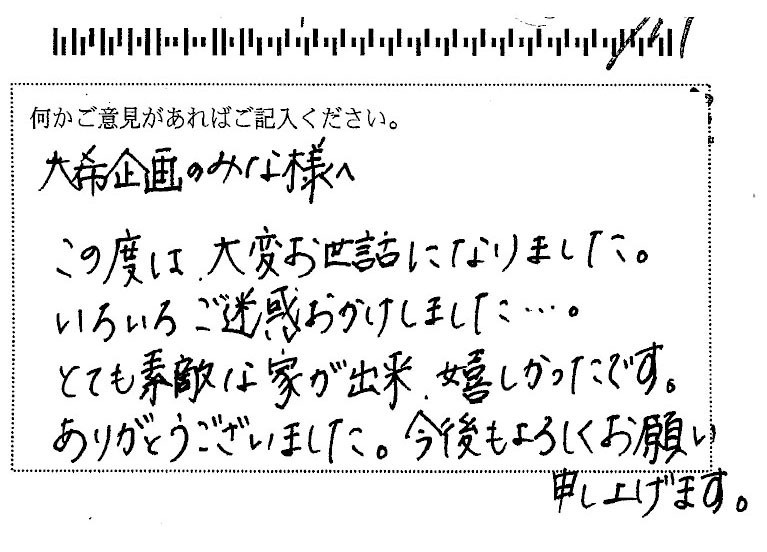 何かご意見があればご記入ください。
大希企画のみな様へ
この度は、大変お世話になりました。
いろいろご迷惑おかけしました…。
とても素敵な家が出来、嬉しかったです。
ありがとうございました。今後もよろしくお願い
申し上げます。